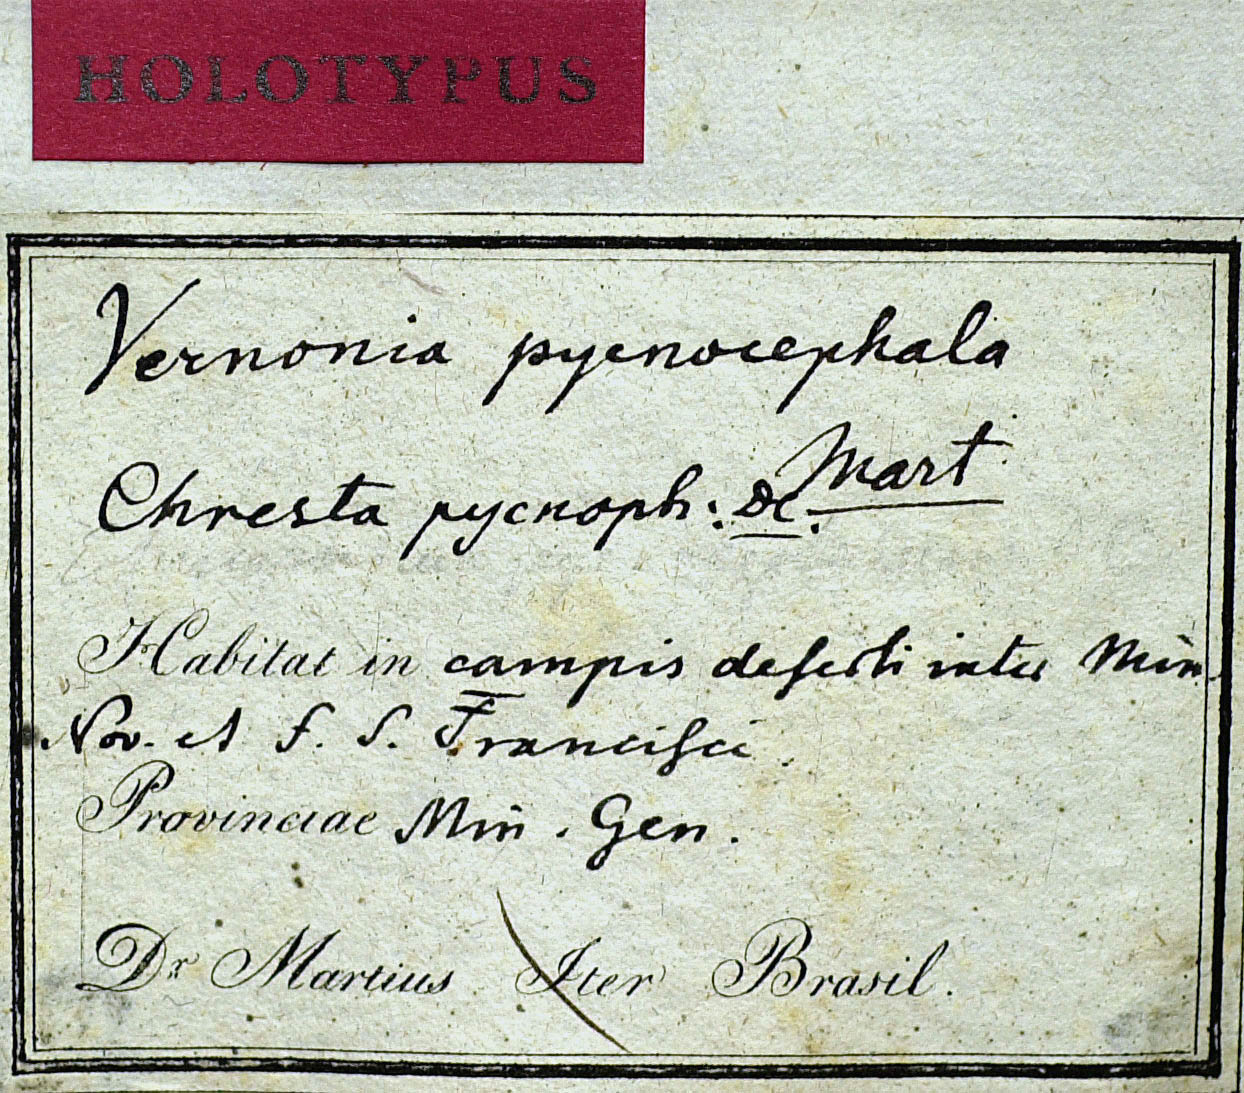 HOLOTYPUS
Vernonia pycnocephala
Mart
Chresta pycnoph: DC.
Habitat in campis deserti inter Min.
Nov. et f. S. Francisci.
Provinciae Min. Gen.
Dr Martius Iter Brasil.